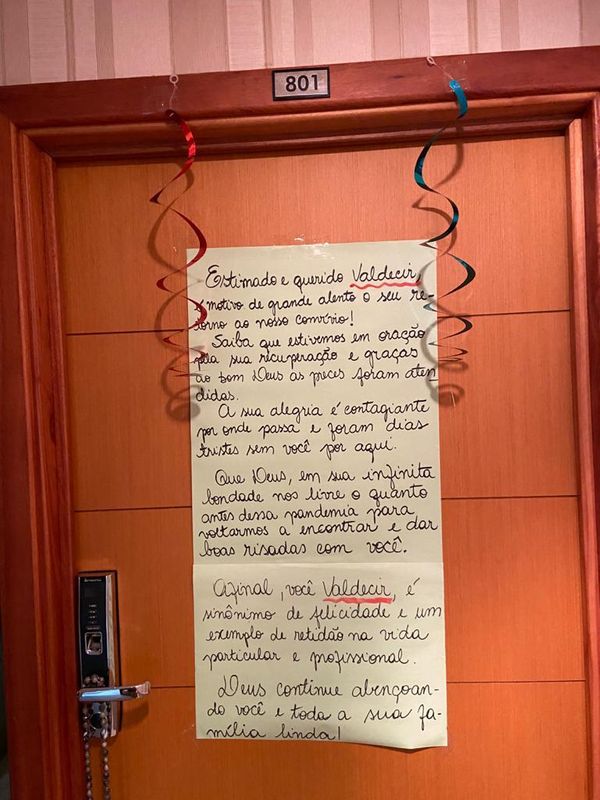 801
Estimado e querido Valdecir,
é motivo de grande alento o seu re-
torno ao nosso convívio!
Saiba que estivemos em oração
pela sua recuperação e graças
ao bom Deus as preces foram aten
didas.
A sua alegria é contagiante
por onde passa e foram dias
tristes sem você por aqui.
Que Deus, em sua infinita
bondade nos livre o quanto
antes dessa pandemia para
voltarmos a encontrar e dar
boas risadas com você.
Afinal, você Valdecir, é
sinônimo de felicidade e um
exemplo de retidão na vida
particular e profissional.
Deus continue abençoan-
do você e toda a sua fa-
mília linda!